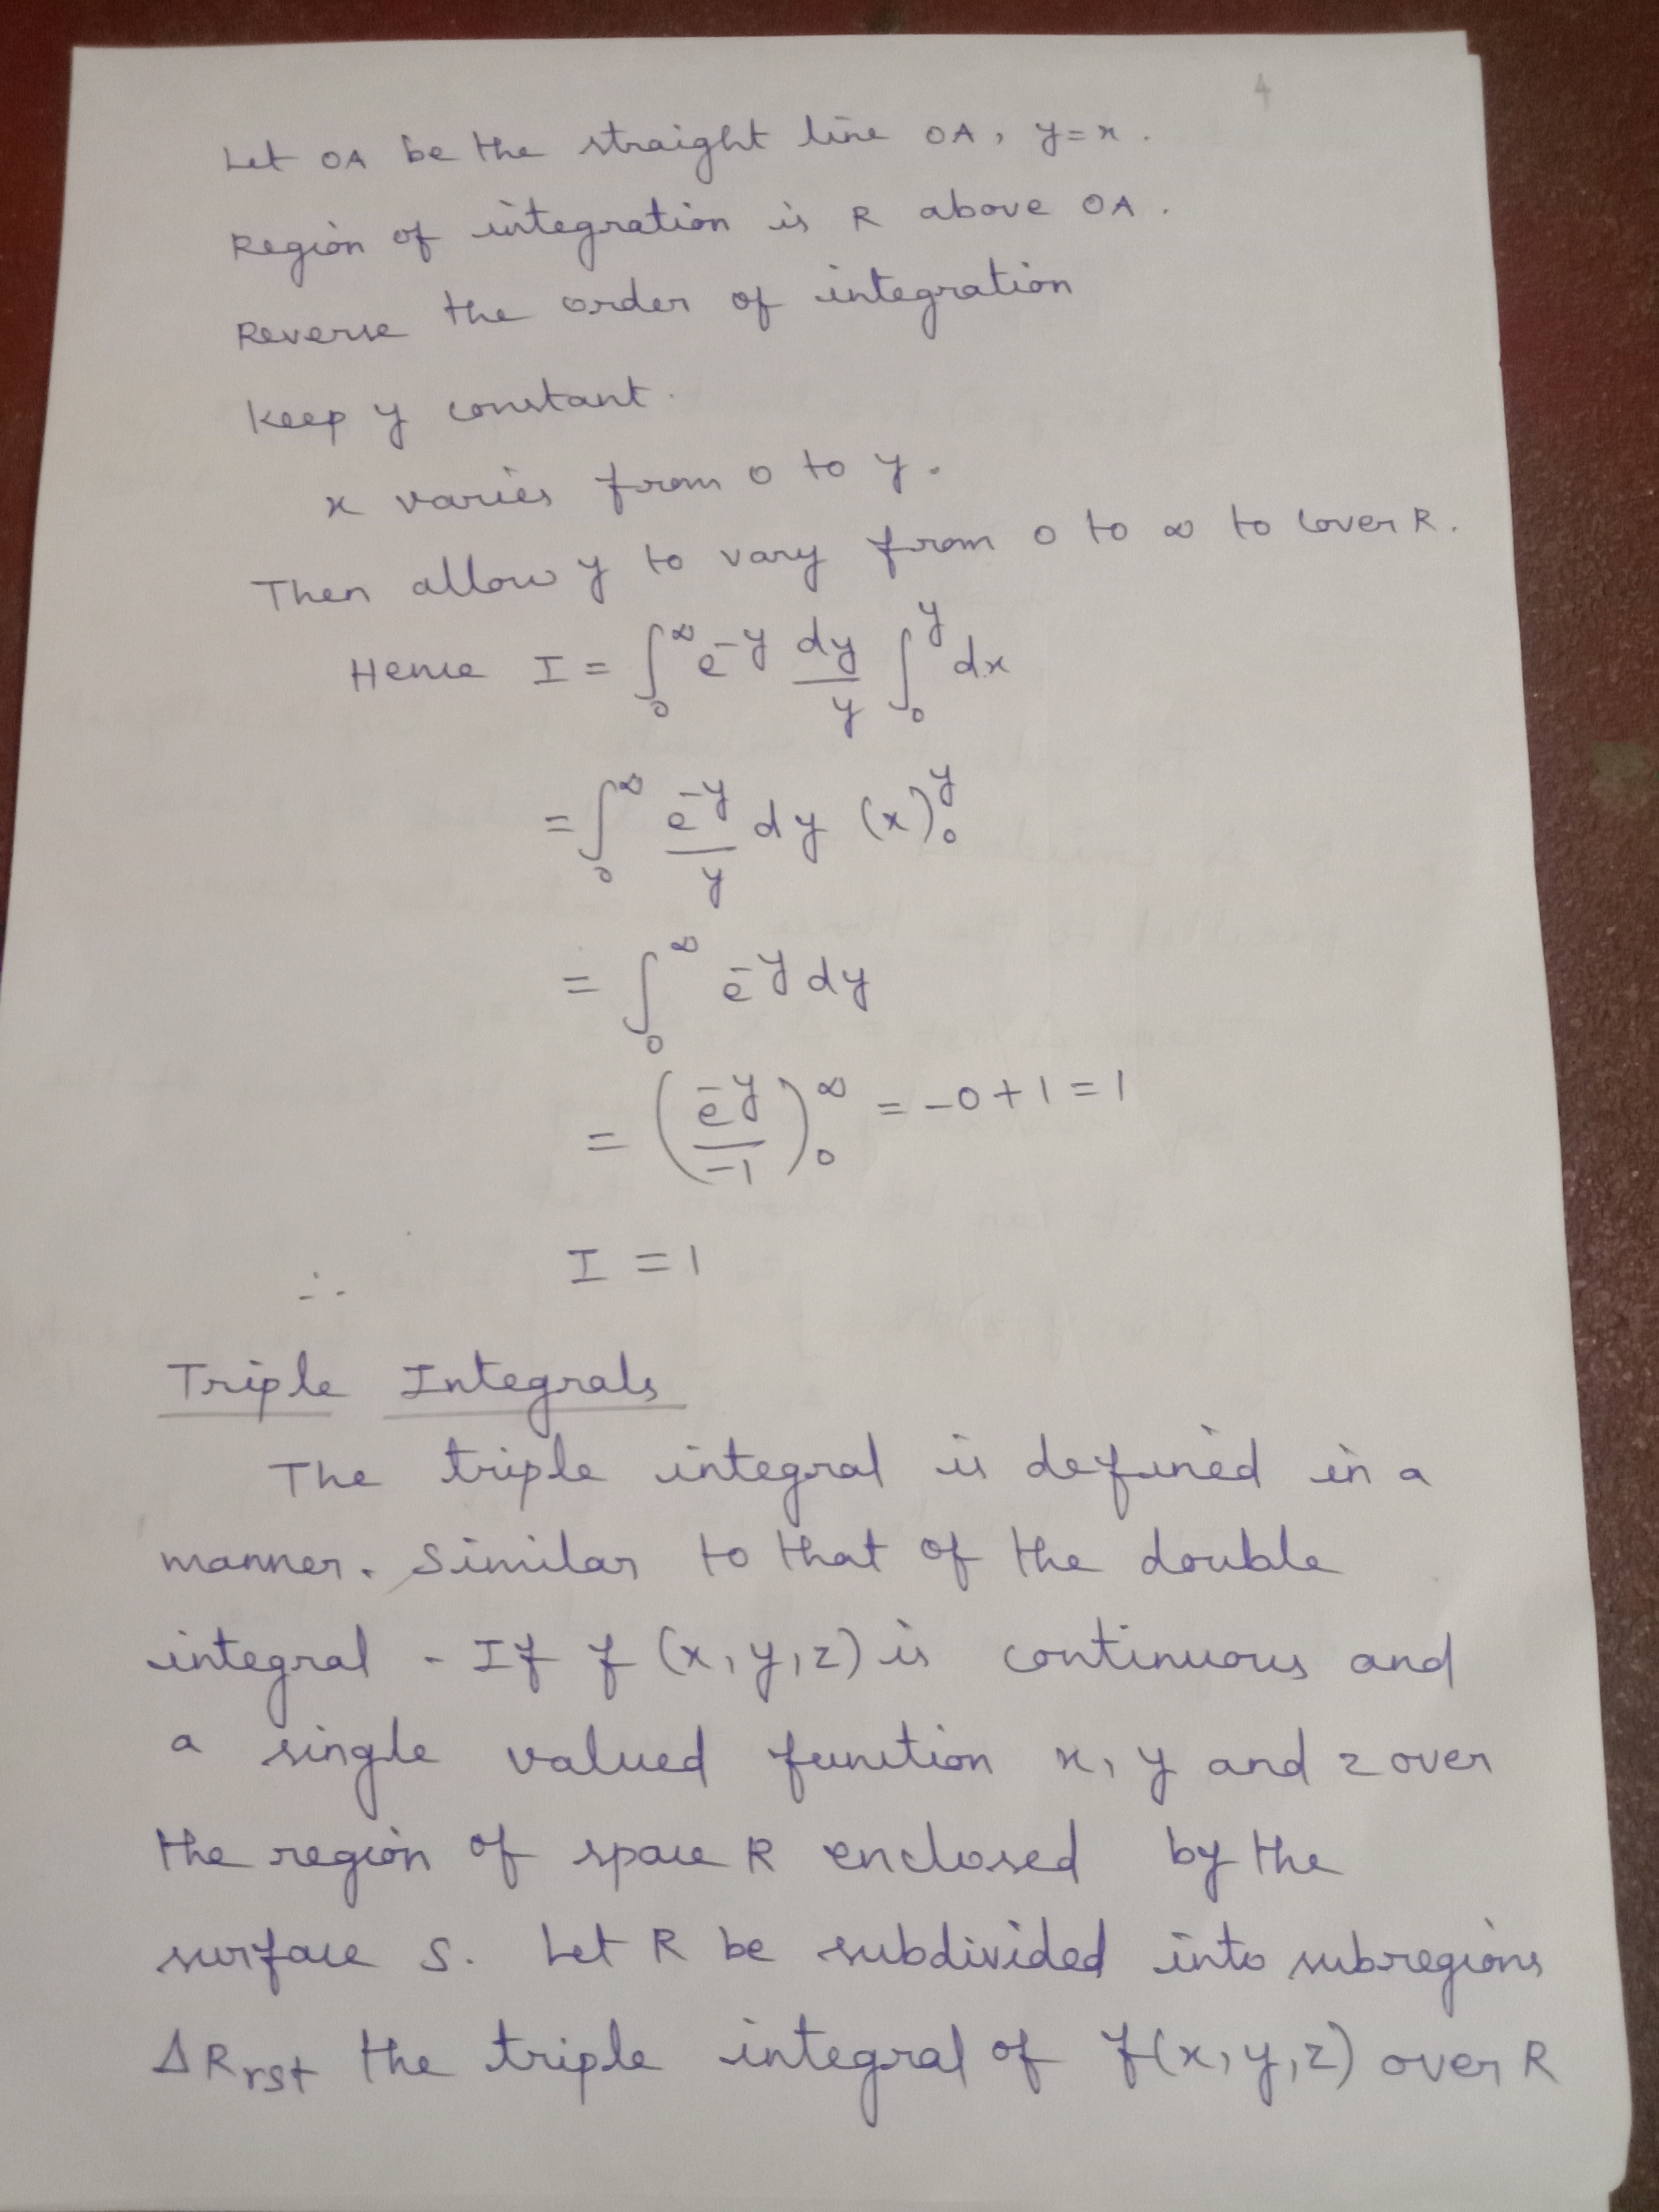 4
Let OA be the straight line OA, y=x.
Region of integration is R above OA.
Reverse the order of integration
Keep y constant.
x varies from 0 to y.
Then allow y to vary from 0 to ∞ to cover R.
Hence I = ∫₀^∞ e^-y dy/y ∫₀^y dx
= ∫₀^∞ e^-y/y dy (x)₀^y
= ∫₀^∞ e^-y dy
= (e^-y/-1)₀^∞ = -0+1=1
∴ I = 1
Triple Integrals
The triple integral is defined in a
manner. Similar to that of the double
integral - If f (x,y,z) is continuous and
a single valued function x, y and z over
the region of space R enclosed by the
surface S. Let R be subdivided into subregions
ΔRrst the triple integral of f(x,y,z) over R